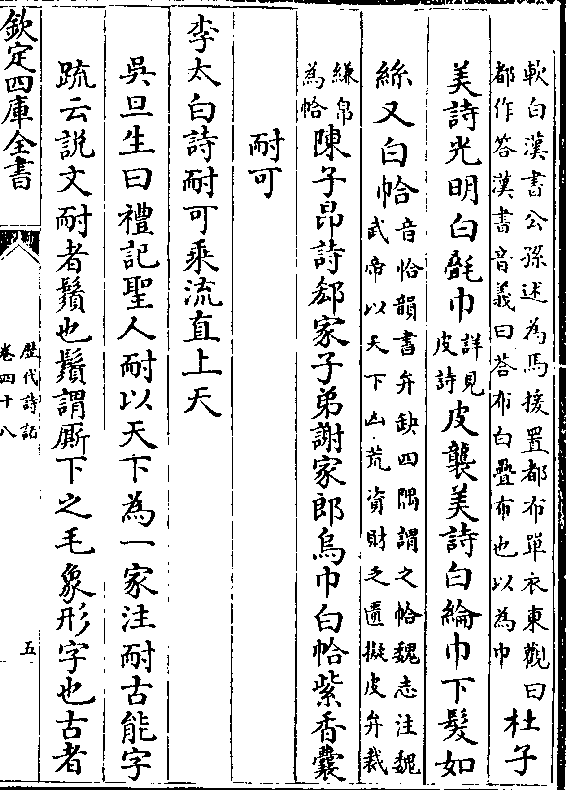 軟白漢書公孫述為馬援置都布單衣東觀曰
都作荅漢書音義曰荅布白疊布也以為巾
杜子
美詩光明白㲲巾
詳見
皮詩
皮襲美詩白綸巾下髮如
絲又白帢
音恰韻書弁缺四隅謂之帢魏志注魏
武帝以天下凶荒資財乏匱擬皮弁裁
縑帛
為帢
陳子昂詩郄家子弟謝家郎烏巾白帢紫香囊
耐可
李太白詩耐可乘流直上天
吳旦生曰禮記聖人耐以天下為一家注耐古能字
疏云説文耐者鬚也鬚謂頤下之毛象形字也古者
欽定四庫全書
歴代詩話
卷四十八
五